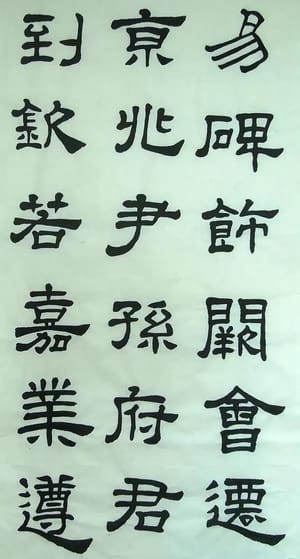 易碑飾闕會遷
亰兆尹孫府君
到欽若嘉業遵